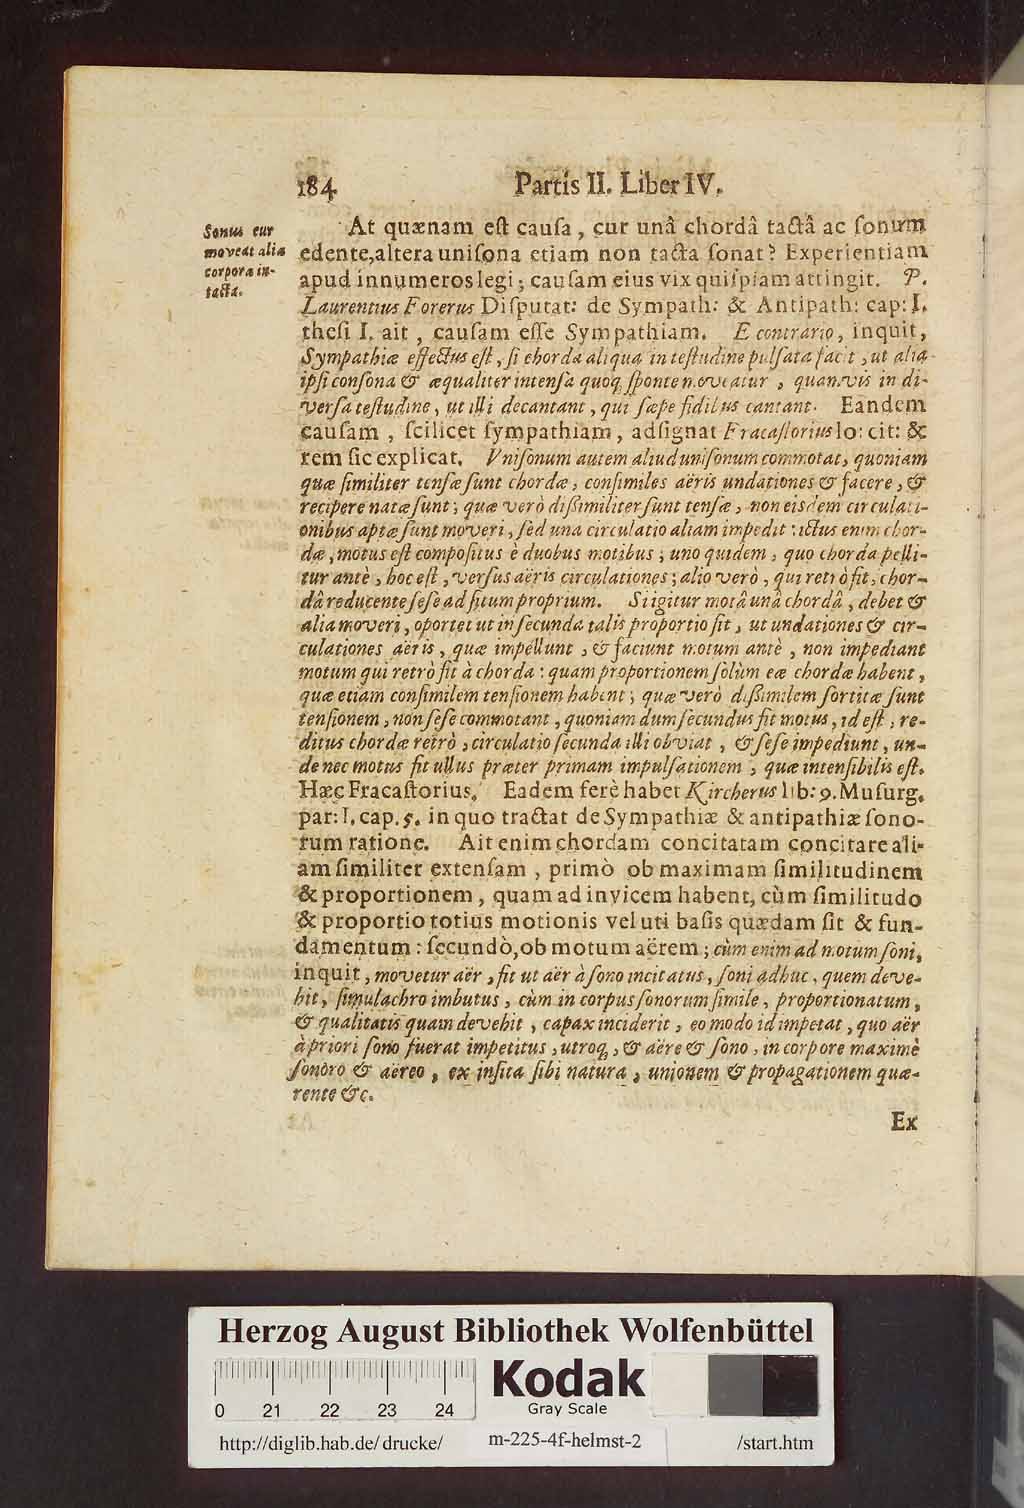 184
Partis II. Liber IV.
Sonus cur
moveat alia
corpora in-
tacta.
At quænam eſt cauſa, cur unâ chordâ tactâ ac ſonum
edente, altera uniſona etiam non tacta ſonat? Experientiam
apud innumeros legi; cauſam eius vix quiſpiam attingit. P.
Laurentius Forerus Diſputat: de Sympath: & Antipath: cap: I.
theſi I. ait, cauſam eſſe Sympathiam. E contrario, inquit,
Sympathiæ effectus eſt, ſi chorda aliqua in teſtudine pulſata facit, ut alia
ipſi conſona & æqualiter intenſa quoq́, ſponte moveatur, quamvis in di-
verſa teſtudine, ut illi decantant, qui ſæpe fidibus cantant. Eandem
cauſam, ſcilicet ſympathiam, adſignat Fracaſtorius lo: cit: &
rem ſic explicat. Vniſonum autem aliud uniſonum commotat, quoniam
quæ ſimiliter tenſæ ſunt chordæ, conſimiles aëris undationes & facere, &
recipere natæ ſunt; quæ verò dißimiliter ſunt tenſæ, non eisdem circulati-
onibus aptæ ſunt moveri, ſed una circulatio aliam impedit: ictus enim chor-
dæ, motus eſt compoſitus è duobus motibus; uno quidem, quo chorda pelli-
tur antè, hoc eſt, verſus aëris circulationes; alio verò, qui retrò fit, chor-
dâ reducente ſeſe ad ſitum proprium. Si igitur motâ unâ chordâ, debet &
alia moveri, oportet ut in ſecunda talis proportio ſit, ut undationes & cir-
culationes aëris, quæ impellunt, & faciunt motum antè, non impediant
motum qui retrò fit à chorda: quam proportionem ſolùm eæ chordæ habent,
quæ etiam conſimilem tenſionem habent; quæ verò dißimilem ſortitæ ſunt
tenſionem, non ſeſe commotant, quoniam dum ſecundus fit motus, id eſt, re-
ditus chordæ retrò, circulatio ſecunda illi obviat, & ſeſe impediunt, un-
de nec motus fit ullus præter primam impulſationem, quæ intenſibilis eſt.
Hæc Fracaſtorius. Eadem ferè habet Kircherus lib: 9. Muſurg.
par: I. cap. 5. in quo tractat de Sympathiæ & antipathiæ ſono-
rum ratione. Ait enim chordam concitatam concitare ali-
am ſimiliter extenſam, primò ob maximam ſimilitudinem
& proportionem, quam ad invicem habent, cùm ſimilitudo
& proportio totius motionis veluti baſis quædam ſit & fun-
damentum: ſecundò, ob motum aërem; cùm enim ad motum ſoni,
inquit, movetur aër, fit ut aër à ſono incitatus, ſoni adhuc, quem deve-
hit, ſimulachro imbutus, cùm in corpus ſonorum ſimile, proportionatum,
& qualitatis quam devehit, capax inciderit, eo modo id impetat, quo aër
à priori ſono fuerat impetitus, utroq́, & aëre & ſono, in corpore maximè
ſonoro & aëreo, ex inſita ſibi natura, unionem & propagationem quæ-
rente &c.
Ex
Herzog August Bibliothek Wolfenbüttel
Kodak
Gray Scale
0 21 22 23 24
http://diglib.hab.de/drucke/ m-225-4f-helmst-2 /start.htm